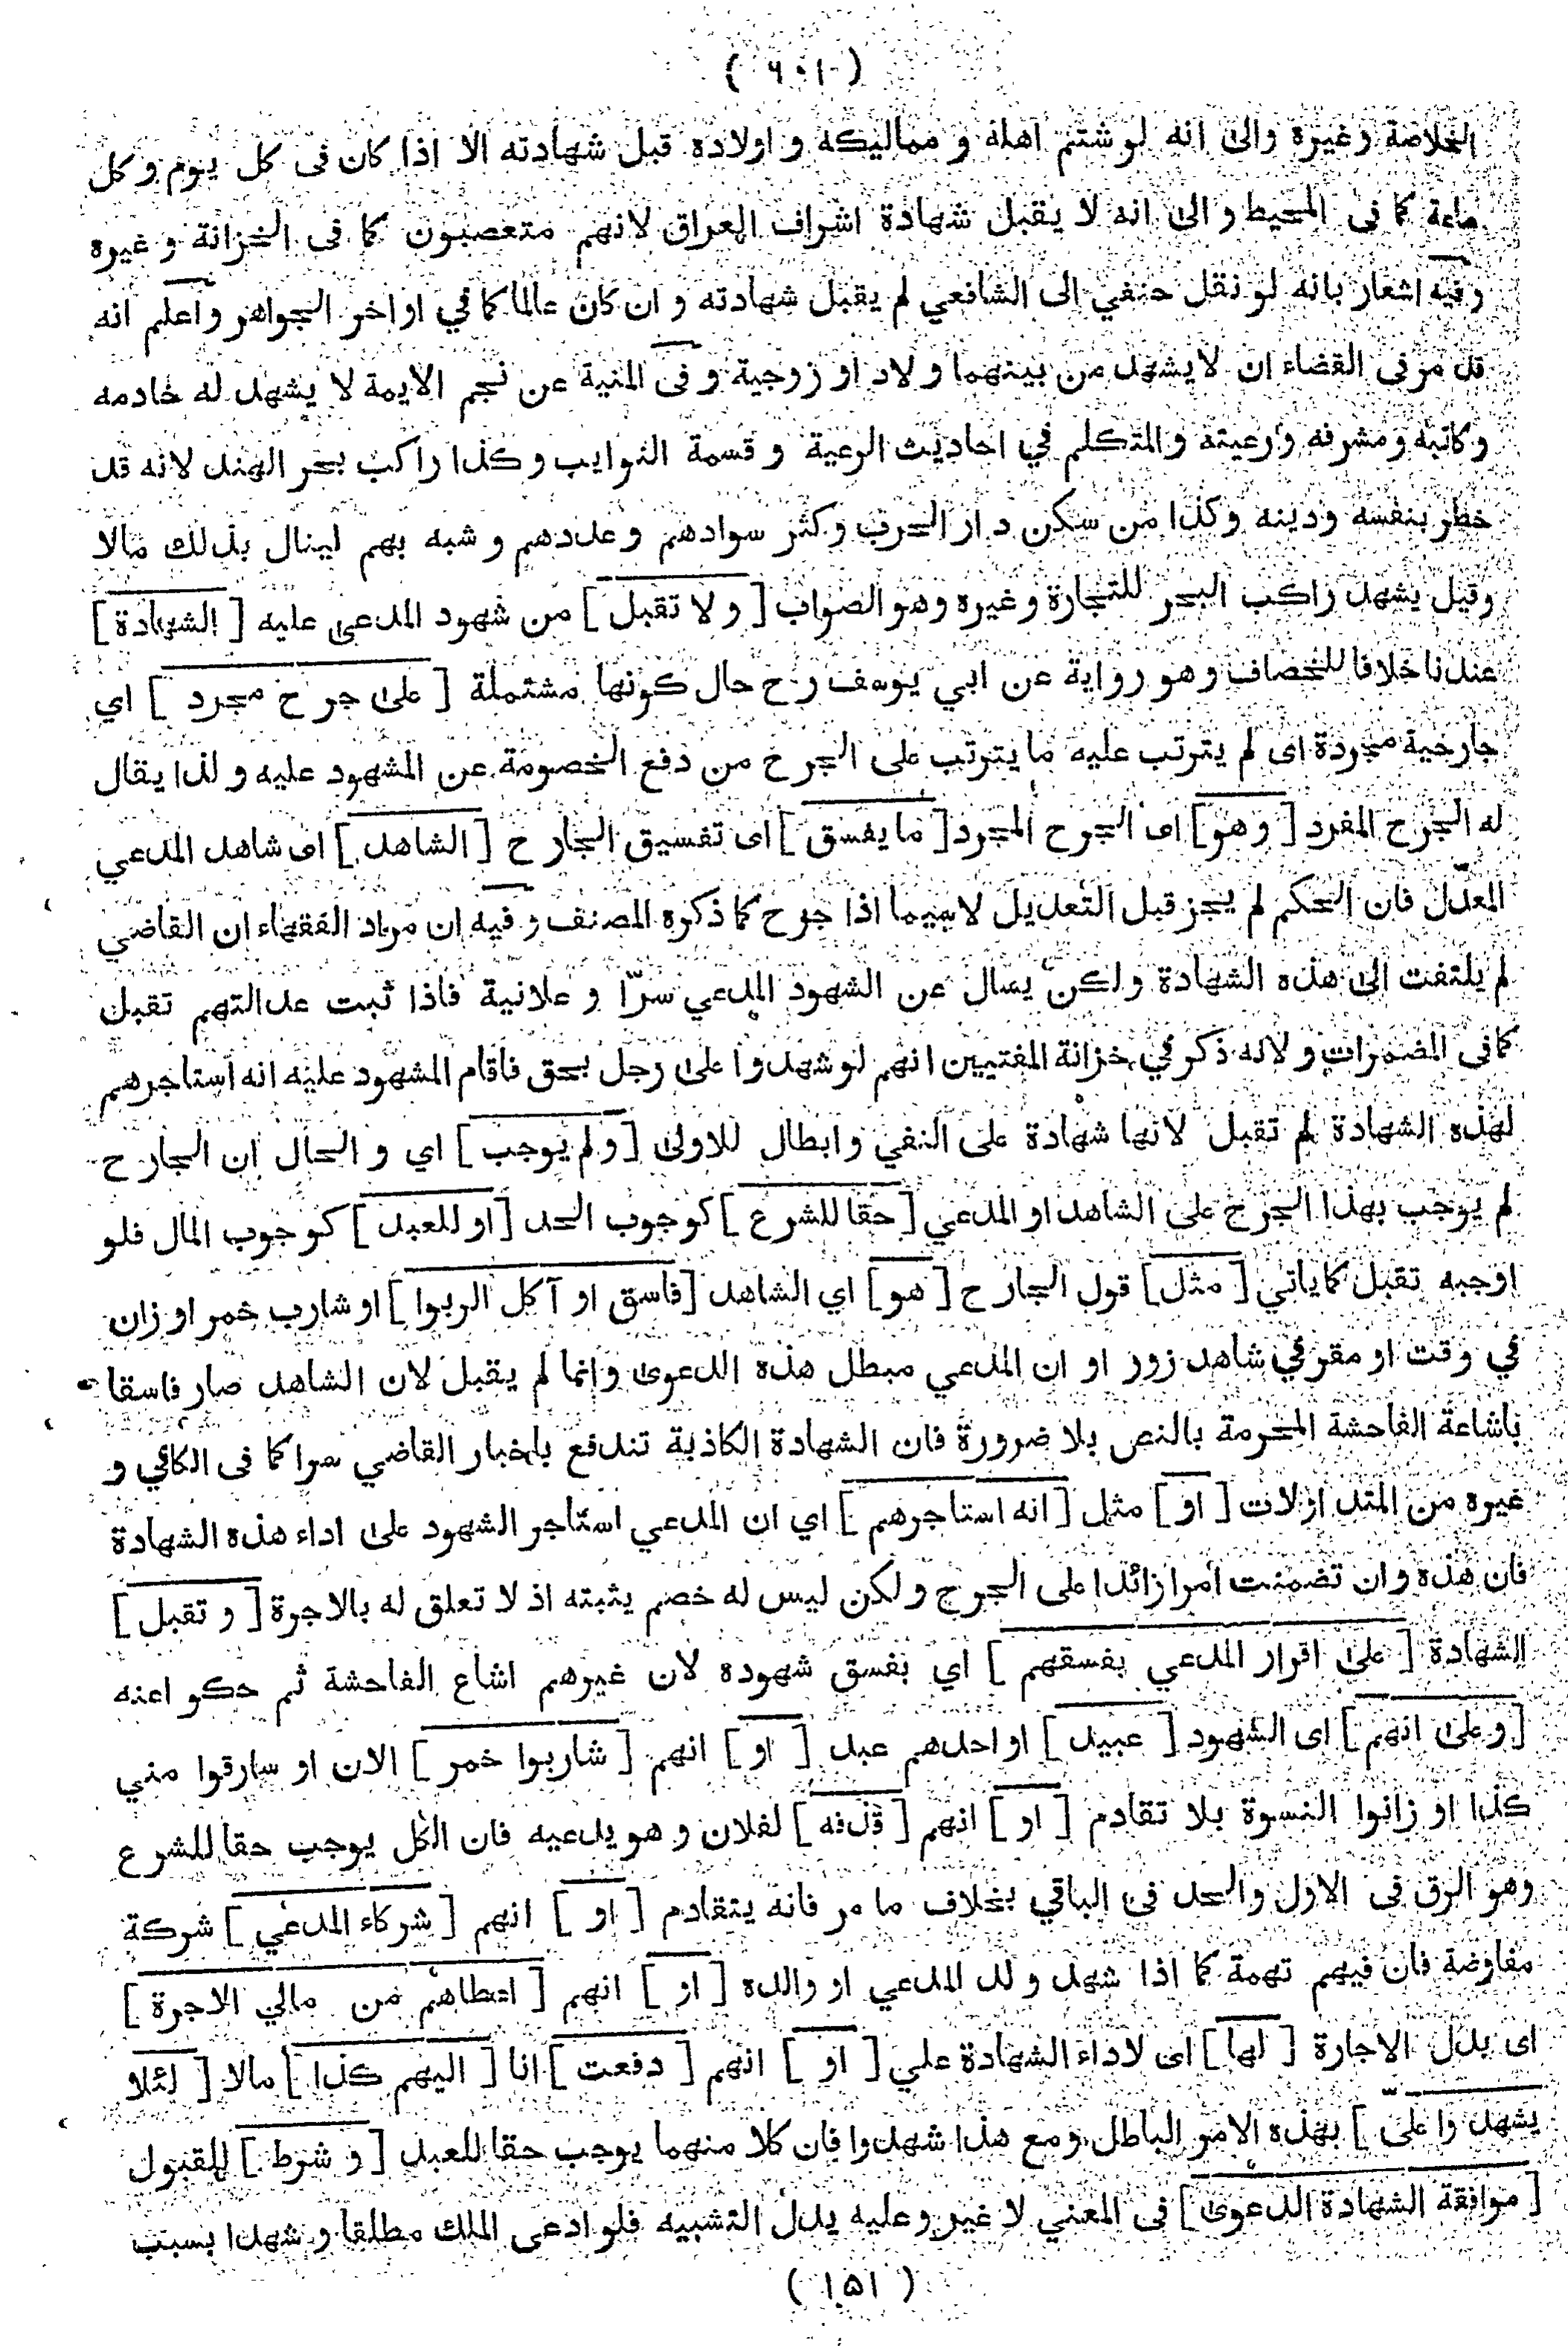 ( ٦٠١ )
الخلاصة وغيره والى انه لو شتم اهله و مماليكه و اولاده قبل شهادته الا اذا كان فى كل يوم و كل
ساعة كما فى المحيط و الى انه لا يقبل شهادة اشراف العراق لانهم متعصبون كما فى الخزانة و غيره
وفيه اشعار بانه لو نقل حنفي الى الشافعي لم يقبل شهادته و ان كان عالما كما في اواخر الجواهر و اعلم انه
قد مر فى القضاء ان لا يشهد من بينهما ولاد او زوجية و فى المنية عن نجم الايمة لا يشهد له خادمه
و كاتبه و مشرفه و رعيته و المتكلم في احاديث الرعية و قسمة النوايب و كذا راكب بحر الهند لانه قد
خطر بنفسه ودينه وكذا من سكن دار الحرب و كثر سوادهم و عددهم و شبه بهم لينال بذلك مالا
وقيل يشهد راكب البحر للتجارة و غيره وهو الصواب [ و لا تقبل ] من شهود المدعى عليه [ الشهادة ]
عندنا خلافا للخصاف وهو رواية عن ابي يوسف رح حال كونها مشتملة [ على جرح مجرد ] اي
جارحية مجردة اى لم يترتب عليه ما يترتب على الجرح من دفع الخصومة عن المشهود عليه و لذا يقال
له الجرح المفرد [ وهو ] اى الجرح المجرد [ ما يفسق ] اى تفسيق الجارح [ الشاهد ] اى شاهد المدعي
المعدّل فان الحكم لم يجز قبل التعديل لاسيما اذا جرح كما ذكره المصنف وفيه ان مراد الفقهاء ان القاضي
لم يلتفت الى هذه الشهادة ولكن يسال عن الشهود المدعي سرّا و علانية فاذا ثبت عدالتهم تقبل
كما فى المضمرات و لانه ذكر في خزانة المفتيين انهم لو شهدوا على رجل بحق فاقام المشهود عليه انه استاجرهم
لهذه الشهادة لم تقبل لانها شهادة على النفي وابطال للاولى [ ولم يوجب ] اي و الحال ان الجارح
لم يوجب بهذا الجرح على الشاهد او المدعي [ حقا للشرع ] كوجوب الحد [ او للعبد ] كوجوب المال فلو
اوجبه تقبل كما ياتي [ مثل ] قول الجارح [ هو ] اي الشاهد [ فاسق او آكل الربوا ] او شارب خمر او زان
في وقت او مقر في شاهد زور او ان المدعي مبطل هذه الدعوى وانما لم يقبل لان الشاهد صار فاسقا
باشاعة الفاحشة المحرمة بالنص بلا ضرورة فان الشهادة الكاذبة تندفع باخبار القاضي سرا كما فى الكافي و
غيره من المتداولات [ او ] مثل [ انه استاجرهم ] اي ان المدعي استاجر الشهود على اداء هذه الشهادة
فان هذه وان تضمنت امرا زائدا على الجرح ولكن ليس له خصم يثبته اذ لا تعلق له بالاجرة [ و تقبل ]
الشهادة [ على اقرار المدعي بفسقهم ] اي بفسق شهوده لان غيرهم اشاع الفاحشة ثم حكوا عنه
[ وعلى انهم ] اى الشهود [ عبيد ] او احدهم عبد [ او ] انهم [ شاربوا خمر ] الان او سارقوا مني
كذا او زانوا النسوة بلا تقادم [ او ] انهم [ قذفه ] لفلان و هو يدعيه فان الكل يوجب حقا للشرع
وهو الرق فى الاول والحد فى الباقي بخلاف ما مر فانه يتقادم [ او ] انهم [ شركاء المدعي ] شركة
مفاوضة فان فيهم تهمة كما اذا شهد ولد المدعي او والده [ او ] انهم [ اعطاهم من مالي الاجرة ]
اى بدل الاجارة [ لها ] اى لاداء الشهادة علي [ او ] انهم [ دفعت ] انا [ اليهم كذا ] مالا [ لئلا
يشهدوا عليّ ] بهذه الامر الباطل و مع هذا شهدوا فان كلا منهما يوجب حقا للعبد [ و شرط ] للقبول
[ موافقة الشهادة الدعوى ] فى المعني لا غير و عليه يدل التشبيه فلو ادعى الملك مطلقا و شهدا بسبب
( ١٥١ )